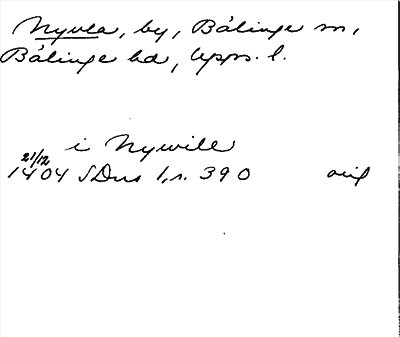 Nyvla, by, Bälinge sn,
Bälinge hd, Upps. l.
i Nywille
21/12
1404 SDns 1, s. 390 orig